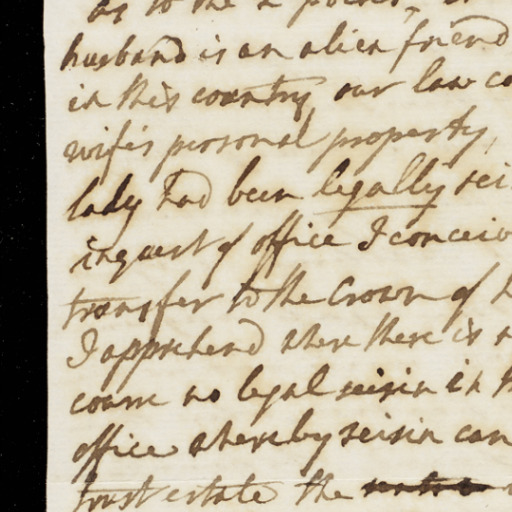 as to the 2 points,
husband is an alien friend
in this country, our law co
wife's personal property,
lady had been legally sei
inquest of office I conceiv
transfer to the Crown of
I apprehend where there is n
course no legal seisin in th
office whereby seisin can
trust estate the